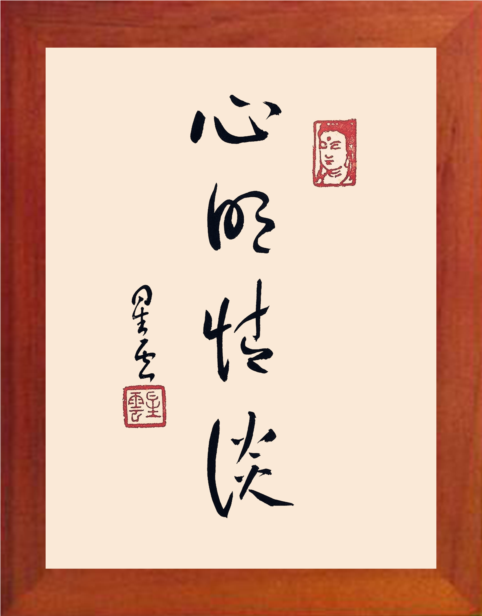 心明情淡
星雲
星雲